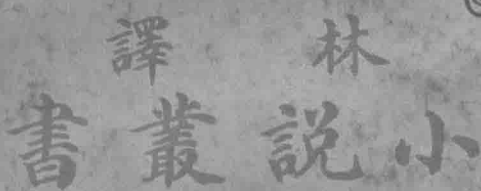 林譯
小説叢書